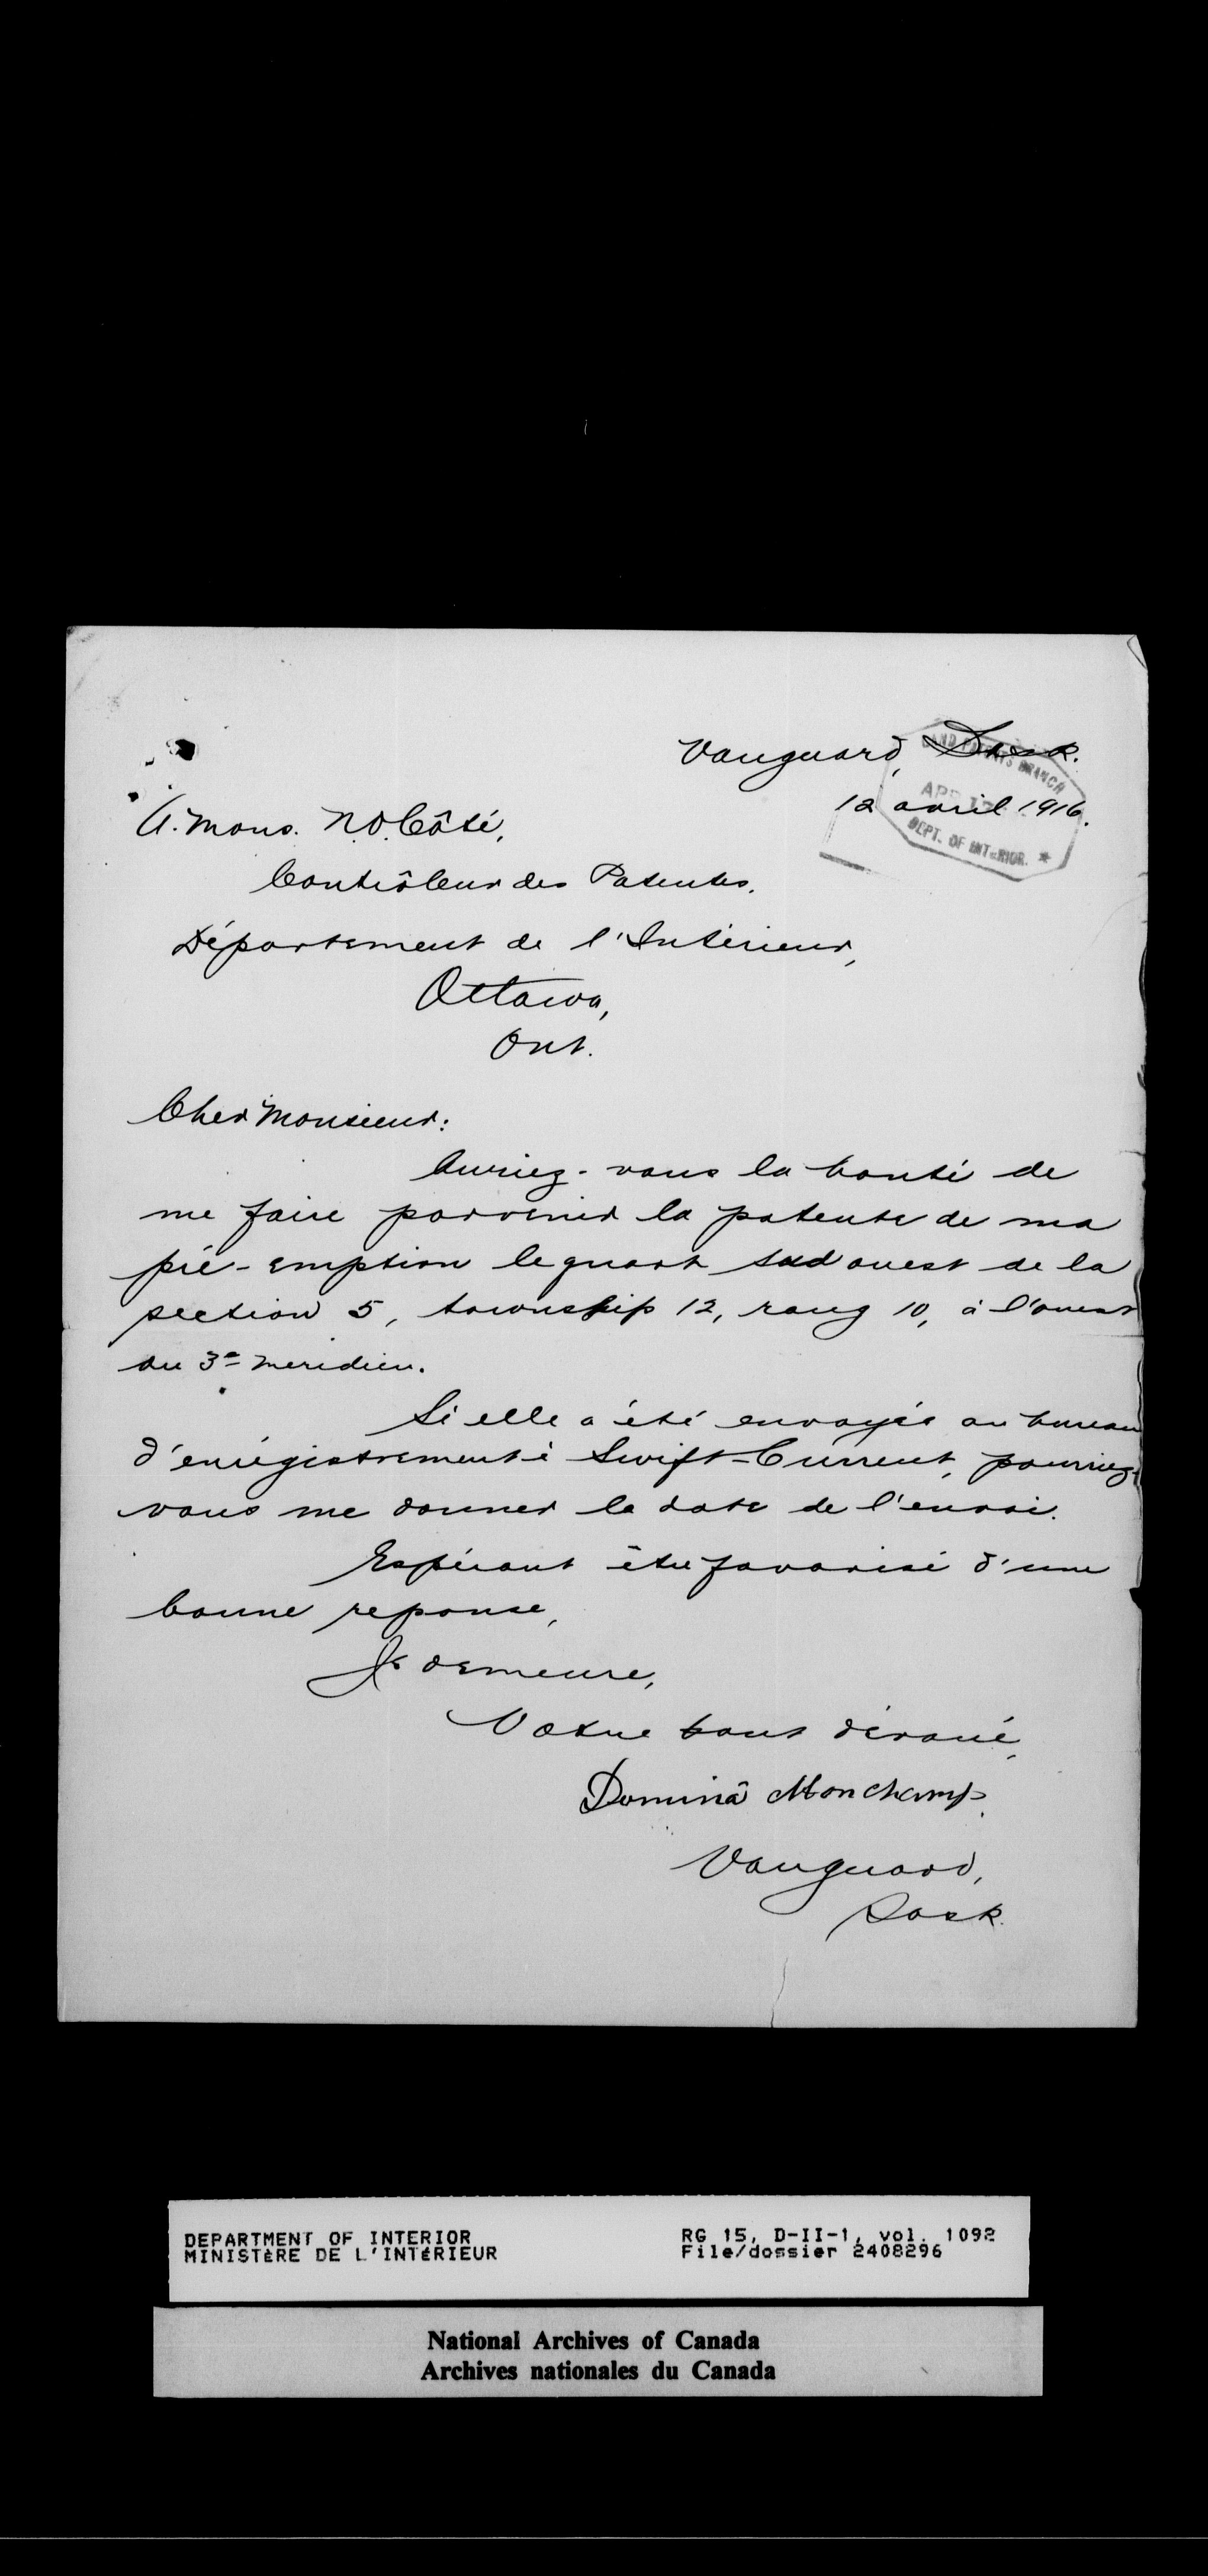 Vanguard, Sask.
12 avril 1916.
LAND PATENTS BRANCH
APR 17
DEPT. OF INTERIOR. *
A. Mons. N.O. Côté,
Contrôleur des Patentes.
Département de l'Intérieur,
Ottawa,
Ont.
Cher Monsieur:
Auriez-vous la bonté de
me faire parvenir la patente de ma
pré-emption le quart sud ouest de la
section 5, township 12, rang 10, à l'ouest
du 3e meridien.
Si elle a été envoyée au bureau
d'enrégistrement à Swift-Current, pourriez-
vous me donner la date de l'envoi.
Espérant être favorisé d'une
bonne reponse,
Je demeure,
Votre tout dévoué,
Dominâ Monchamp.
Vanguard,
Sask.
DEPARTMENT OF INTERIOR
MINISTÈRE DE L'INTÉRIEUR
RG 15, D-II-1, vol. 1092
File/dossier 2408296
National Archives of Canada
Archives nationales du Canada